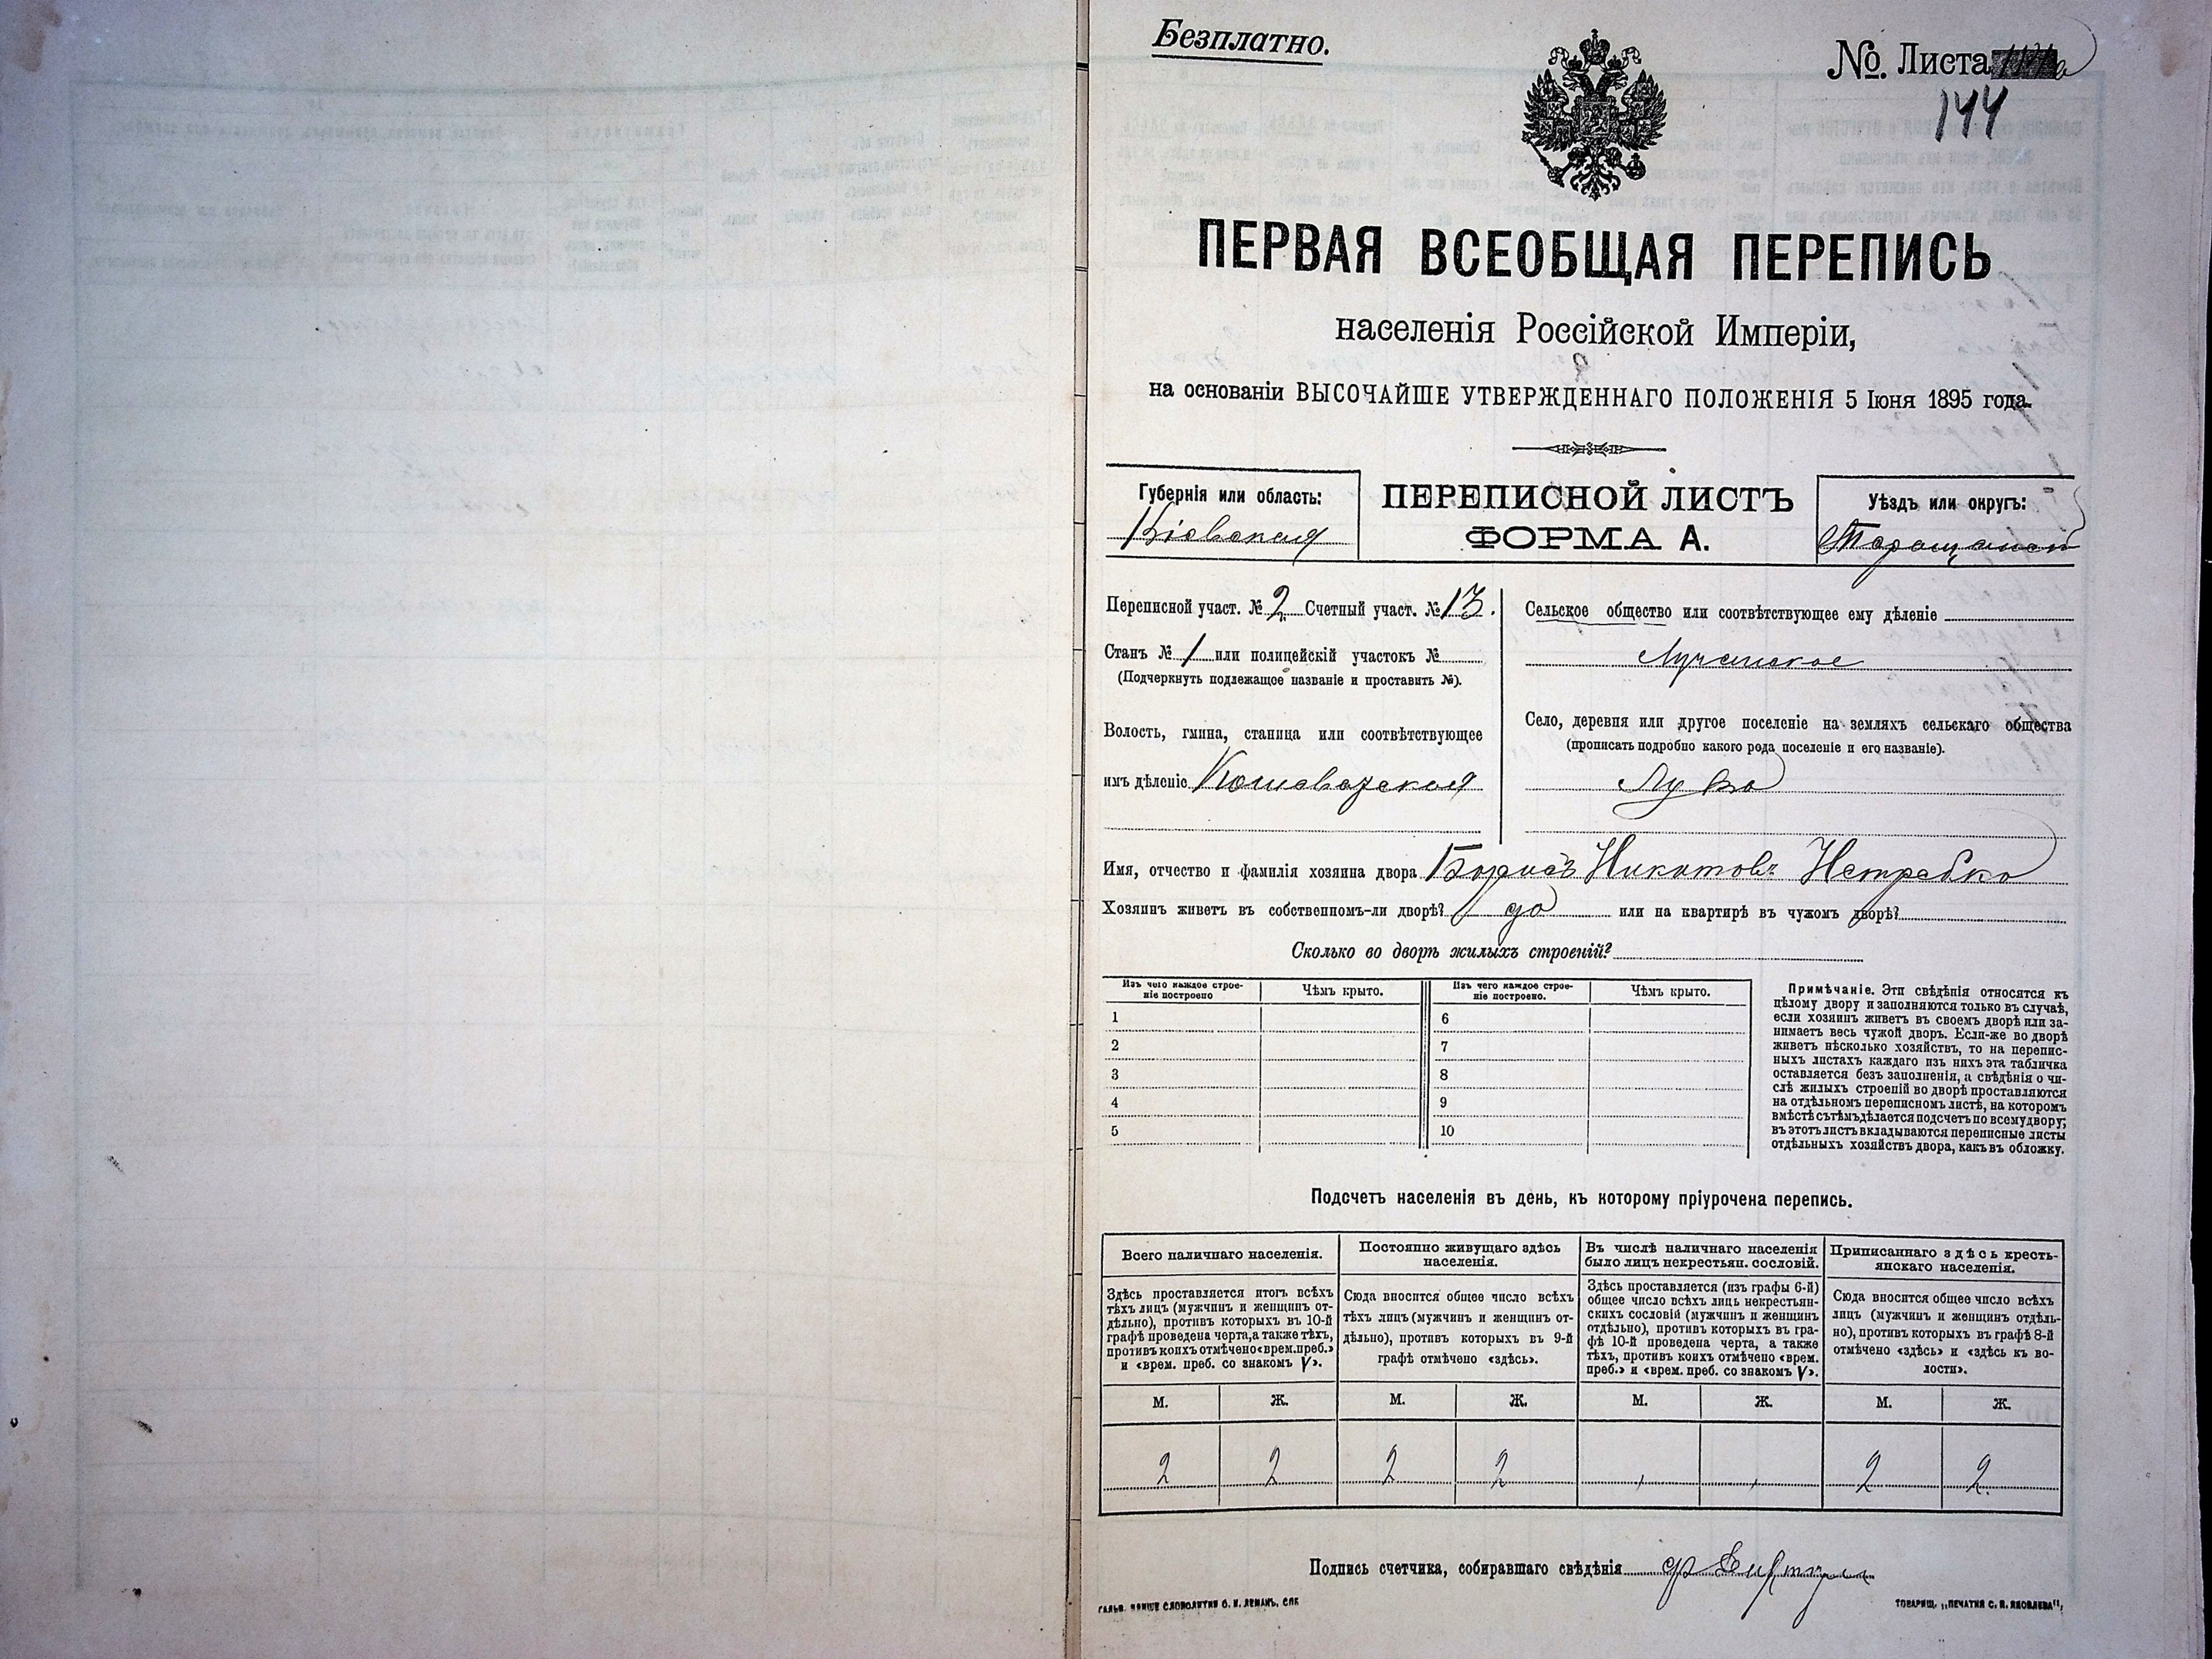 Безплатно.
№. Листа
144
ПЕРВАЯ ВСЕОБЩАЯ ПЕРЕПИСЬ
населенія Россійской Имперіи,
на основаніи ВЫСОЧАЙШЕ УТВЕРЖДЕННАГО ПОЛОЖЕНІЯ 5 Іюня 1895 года.
Губернія или область:
Кіевская
ПЕРЕПИСНОЙ ЛИСТЪ
ФОРМА А.
Уѣздъ или округъ:
Таращанскій
Переписной участ. № 2 Счетный участ. № 13.
Станъ № 1 или полицейскій участокъ №
(Подчеркнуть подлежащое названіе и проставить №).
Волость, гмина, станица или соотвѣтствующее
имъ дѣленіе Кошеватская
Сельское общество или соотвѣтствующее ему дѣленіе
Лучанское
Село, деревня или другое поселеніе на земляхъ сельскаго общества
(прописать подробно какого рода поселеніе и его названіе).
Лука
Имя, отчество и фамилія хозяина двора Борисъ Никитовъ Нетребко
Хозяинъ живетъ въ собственномъ-ли дворѣ? да или на квартирѣ въ чужомъ дворѣ?
Сколько во дворѣ жилыхъ строеній?
Изъ чего каждое строе-
ніе построено
Чѣмъ крыто.
Изъ чего каждое строе-
ніе построено.
Чѣмъ крыто.
1
2
3
4
5
6
7
8
9
10
Примѣчаніе. Эти свѣдѣнія относятся къ
цѣлому двору и заполняются только въ случаѣ,
если хозяинъ живетъ въ своемъ дворѣ или за-
нимаетъ весь чужой дворъ. Если-же во дворѣ
живетъ нѣсколько хозяйствъ, то на перепис-
ныхъ листахъ каждаго изъ нихъ эта табличка
оставляется безъ заполненія, а свѣдѣнія о чи-
слѣ жилыхъ строеній во дворѣ проставляются
на отдѣльномъ переписномъ листѣ, на которомъ
вмѣстѣ съ тѣмъ дѣлается подсчетъ по всему двору;
въ этотъ листъ вкладываются переписные листы
отдѣльныхъ хозяйствъ двора, какъ въ обложку.
Подсчетъ населенія въ день, къ которому пріурочена перепись.
Всего наличнаго населенія.
Здѣсь проставляется итогъ всѣхъ
тѣхъ лицъ (мужчинъ и женщинъ от-
дѣльно), противъ которыхъ въ 10-й
графѣ проведена черта, а также тѣхъ,
противъ коихъ отмѣчено «врем. преб.»
и «врем. преб. со знакомъ V».
Постоянно живущаго здѣсь
населенія.
Сюда вносится общее число всѣхъ
тѣхъ лицъ (мужчинъ и женщинъ от-
дѣльно), противъ которыхъ въ 9-й
графѣ отмѣчено «здѣсь».
Въ числѣ наличнаго населенія
было лицъ некрестьян. сословій.
Здѣсь проставляется (изъ графы 6-й)
общее число всѣхъ лицъ некрестьян-
скихъ сословій (мужчинъ и женщинъ
отдѣльно), противъ которыхъ въ гра-
фѣ 10-й проведена черта, а также
тѣхъ, противъ коихъ отмѣчено «врем.
преб.» и «врем. преб. со знакомъ V».
Приписаннаго здѣсь кресть-
янскаго населенія.
Сюда вносится общее число всѣхъ
лицъ (мужчинъ и женщинъ отдѣль-
но), противъ которыхъ въ графѣ 8-й
отмѣчено «здѣсь» и «здѣсь къ во-
лости».
М. Ж. М. Ж. М. Ж. М. Ж.
2 2 2 2 , , 2 2.
Подпись счетчика, собиравшаго свѣдѣнія
СЛОВОЛИТНИ О. И. ЛЕМАНЪ, СПБ
ТОВАРИЩ. „ПЕЧАТНЯ С. П. ЯКОВЛЕВА",